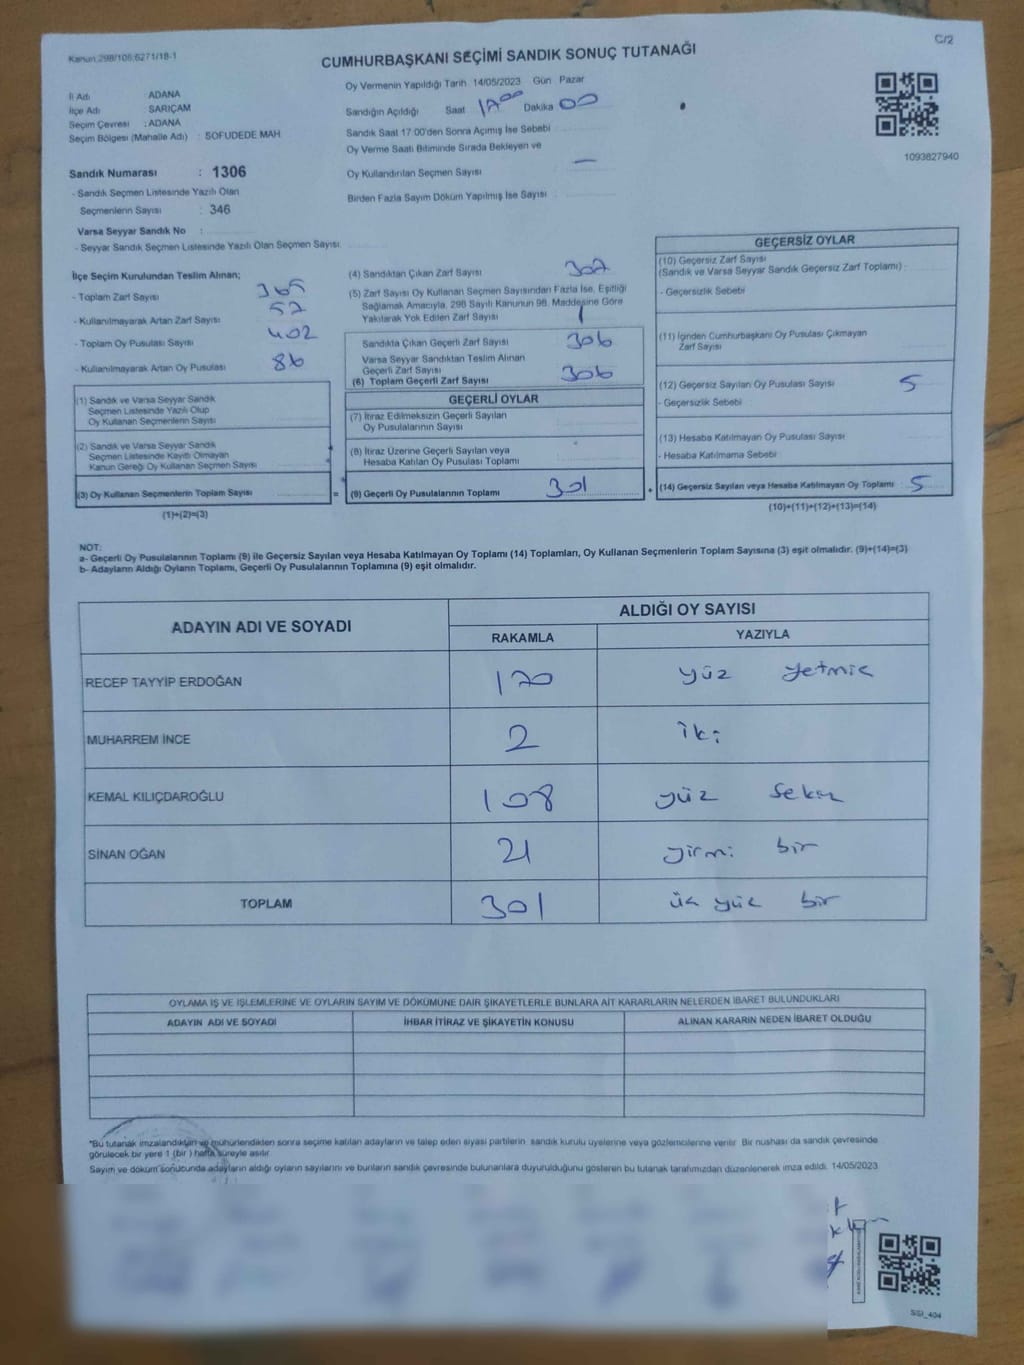 Kanun:298/106:6271/18-1
C/2
CUMHURBAŞKANI SEÇİMİ SANDIK SONUÇ TUTANAĞI
İl Adı ADANA
İlçe Adı SARIÇAM
Seçim Çevresi : ADANA
Seçim Bölgesi (Mahalle Adı) : SOFUDEDE MAH
Oy Vermenin Yapıldığı Tarih 14/05/2023 Gün Pazar
Sandığın Açıldığı Saat 17 00 Dakika 00
Sandık Saat 17:00'den Sonra Açımış İse Sebebi
Oy Verme Saati Bitiminde Sırada Bekleyen ve
Oy Kullandırılan Seçmen Sayısı —
Birden Fazla Sayım Döküm Yapılmış İse Sayısı
1093827940
Sandık Numarası : 1306
- Sandık Seçmen Listesinde Yazılı Olan
Seçmenlerin Sayısı : 346
Varsa Seyyar Sandık No :
- Seyyar Sandık Seçmen Listesinde Yazılı Olan Seçmen Sayısı
İlçe Seçim Kurulundan Teslim Alınan;
- Toplam Zarf Sayısı
- Kullanılmayarak Artan Zarf Sayısı
- Toplam Oy Pusulası Sayısı 402
- Kullanılmayarak Artan Oy Pusulası
(1) Sandık ve Varsa Seyyar Sandık
Seçmen Listesinde Yazılı Olup
Oy Kullanan Seçmenlerin Sayısı
(2) Sandık ve Varsa Seyyar Sandık
Seçmen Listesinde Kayıtlı Olmayan
Kanun Gereği Oy Kullanan Seçmen Sayısı
(3) Oy Kullanan Seçmenlerin Toplam Sayısı
(1)+(2)=(3)
=
(4) Sandıktan Çıkan Zarf Sayısı 307
(5) Zarf Sayısı Oy Kullanan Seçmen Sayısından Fazla İse, Eşitliği
Sağlamak Amacıyla, 298 Sayılı Kanunun 98. Maddesine Göre
Yakılarak Yok Edilen Zarf Sayısı 1
Sandıkta Çıkan Geçerli Zarf Sayısı 306
Varsa Seyyar Sandıktan Teslim Alınan
Geçerli Zarf Sayısı
(6) Toplam Geçerli Zarf Sayısı 306
GEÇERLİ OYLAR
(7) İtiraz Edilmeksizin Geçerli Sayılan
Oy Pusulalarının Sayısı
(8) İtiraz Üzerine Geçerli Sayılan veya
Hesaba Katılan Oy Pusulası Toplamı
(9) Geçerli Oy Pusulalarının Toplamı 301
+
GEÇERSİZ OYLAR
(10) Geçersiz Zarf Sayısı
(Sandık ve Varsa Seyyar Sandık Geçersiz Zarf Toplamı) :
- Geçersizlik Sebebi
(11) İçinden Cumhurbaşkanı Oy Pusulası Çıkmayan
Zarf Sayısı
(12) Geçersiz Sayılan Oy Pusulası Sayısı 5
- Geçersizlik Sebebi
(13) Hesaba Katılmayan Oy Pusulası Sayısı
- Hesaba Katılmama Sebebi
(14) Geçersiz Sayılan veya Hesaba Katılmayan Oy Toplamı 5
(10)+(11)+(12)+(13)=(14)
NOT:
a- Geçerli Oy Pusulalarının Toplamı (9) ile Geçersiz Sayılan veya Hesaba Katılmayan Oy Toplamı (14) Toplamları, Oy Kullanan Seçmenlerin Toplam Sayısına (3) eşit olmalıdır. (9)+(14)=(3)
b- Adayların Aldığı Oyların Toplamı, Geçerli Oy Pusulalarının Toplamına (9) eşit olmalıdır.
ADAYIN ADI VE SOYADI ALDIĞI OY SAYISI
RAKAMLA YAZIYLA
RECEP TAYYİP ERDOĞAN 170 yüz yetmiş
MUHARREM İNCE 2 iki
KEMAL KILIÇDAROĞLU 108 yüz sekiz
SİNAN OĞAN 21 yirmi bir
TOPLAM 301 üç yüz bir
OYLAMA İŞ VE İŞLEMLERİNE VE OYLARIN SAYIM VE DÖKÜMÜNE DAİR ŞİKAYETLERLE BUNLARA AİT KARARLARIN NELERDEN İBARET BULUNDUKLARI
ADAYIN ADI VE SOYADI İHBAR İTİRAZ VE ŞİKAYETİN KONUSU ALINAN KARARIN NEDEN İBARET OLDUĞU
*Bu tutanak imzalandıktan ve mühürlendikten sonra seçime katılan adayların ve talep eden siyasi partilerin sandık kurulu üyelerine veya gözlemcilerine verilir. Bir nushası da sandık çevresinde
görülecek bir yere 1 (bir ) hafta süreyle asılır.
Sayım ve döküm sonucunda adayların aldığı oyların sayılarını ve bunların sandık çevresinde bulunanlara duyurulduğunu gösteren bu tutanak tarafımızdan düzenlenerek imza edildi. 14/05/2023
SSI_404